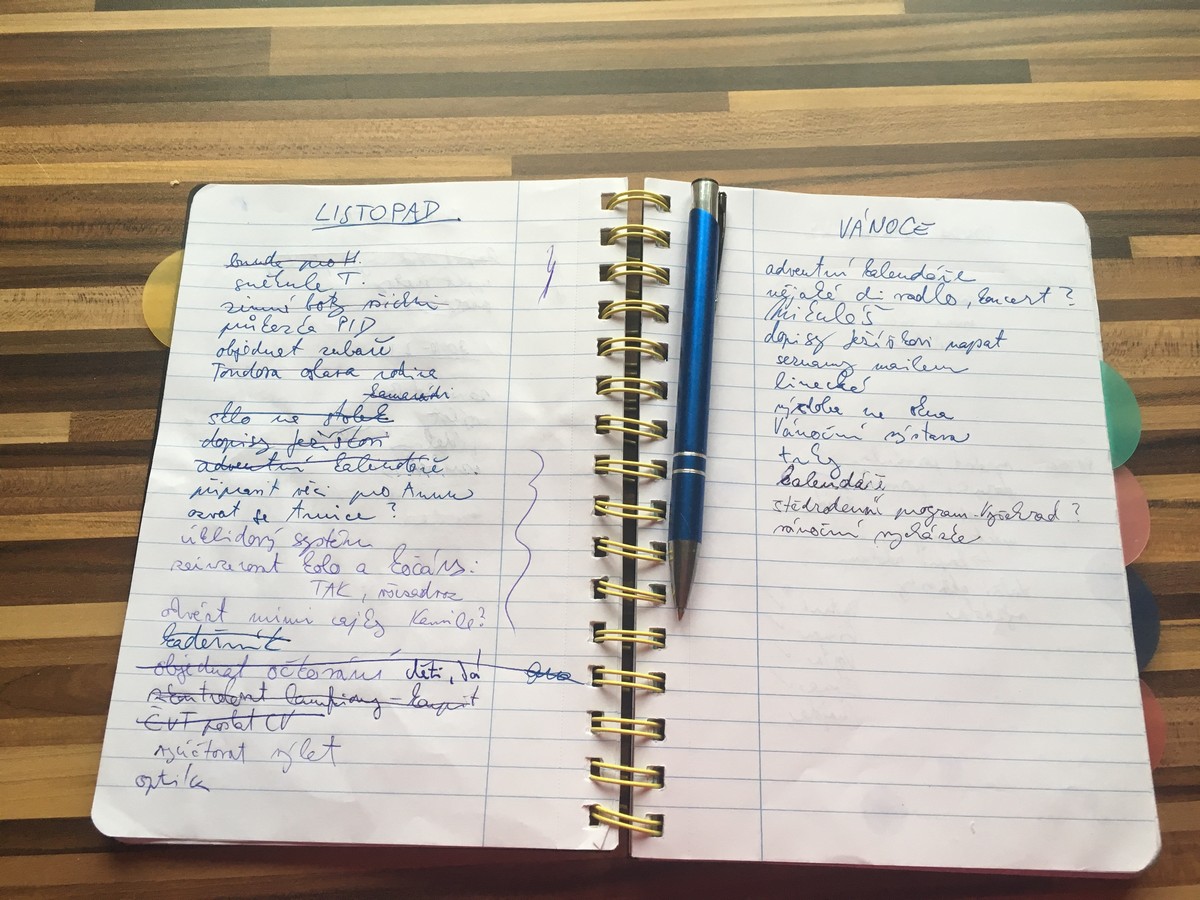 LISTOPAD
bunda pro H.
sněhule T.
zimní boty všichni
průkazka PID
objednat zubaře
Tondova oslava rodina
kamarádi
sklo na stolek
dopisy Ježíškovi
adventní kalendáře
připravit věci pro Annu
ozvat se Anice?
úklidový systém
zainzerovat kolo a kočárky:
TAK, všesedraz
otvírat mimi Kamile?
kadeřník
objednat očkování děti, já
zkontrolovat lampiony - koupit
ČVT poslat CV
vyúčtovat výlet
optika
VÁNOCE
adventní kalendáře
nějaké divadlo, koncert?
Mikuláš
dopisy Ježíškovi napsat
seznamy mailem
linecké
výzdoba na okna
Vánoční výstava
trhy
kalendáře
štědrodenní program - Vyšehrad?
vánoční vycházka